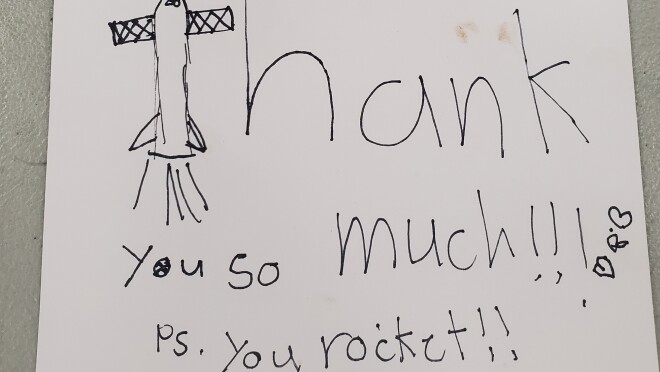 Thank
You so much!!!
Ps. You rocket!!